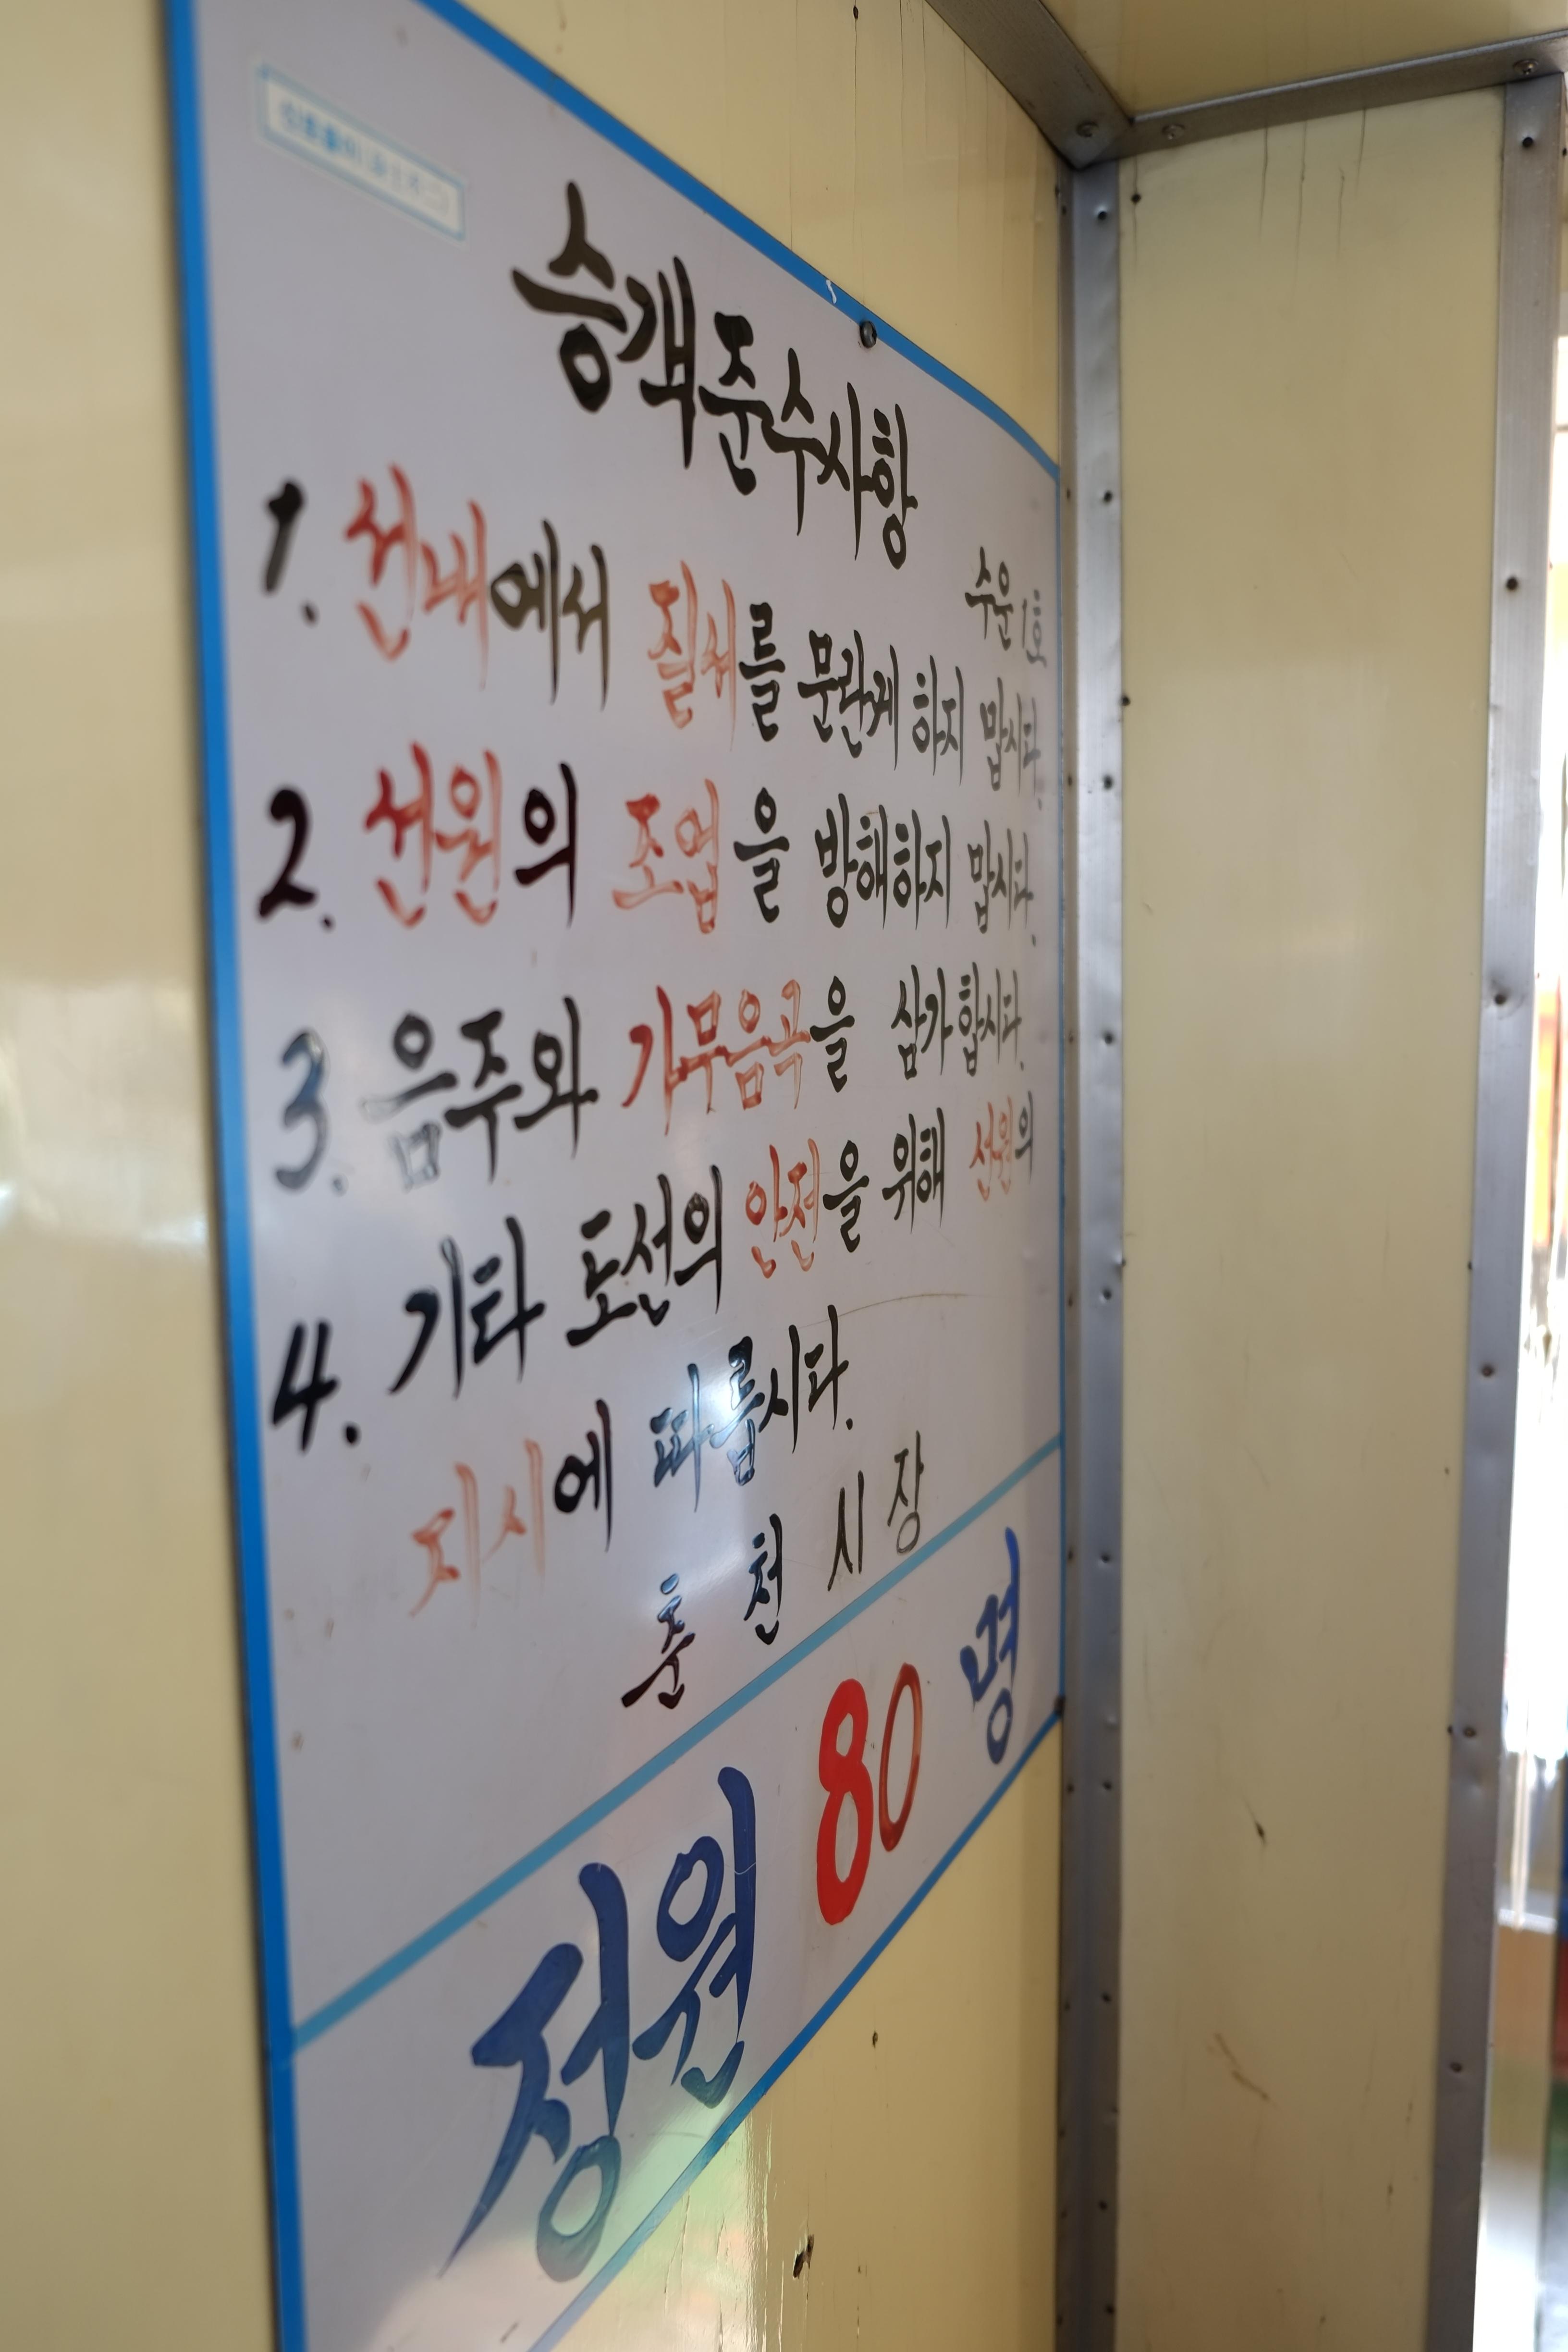 승객준수사항
수운1호
1. 선내에서 질서를 문란케 하지 맙시다.
2. 선원의 조업을 방해하지 맙시다.
3. 음주와 가무음곡을 삼가합시다.
4. 기타 도선의 안전을 위해 선원의
지시에 따릅시다.
춘 천 시 장
정원 80 명